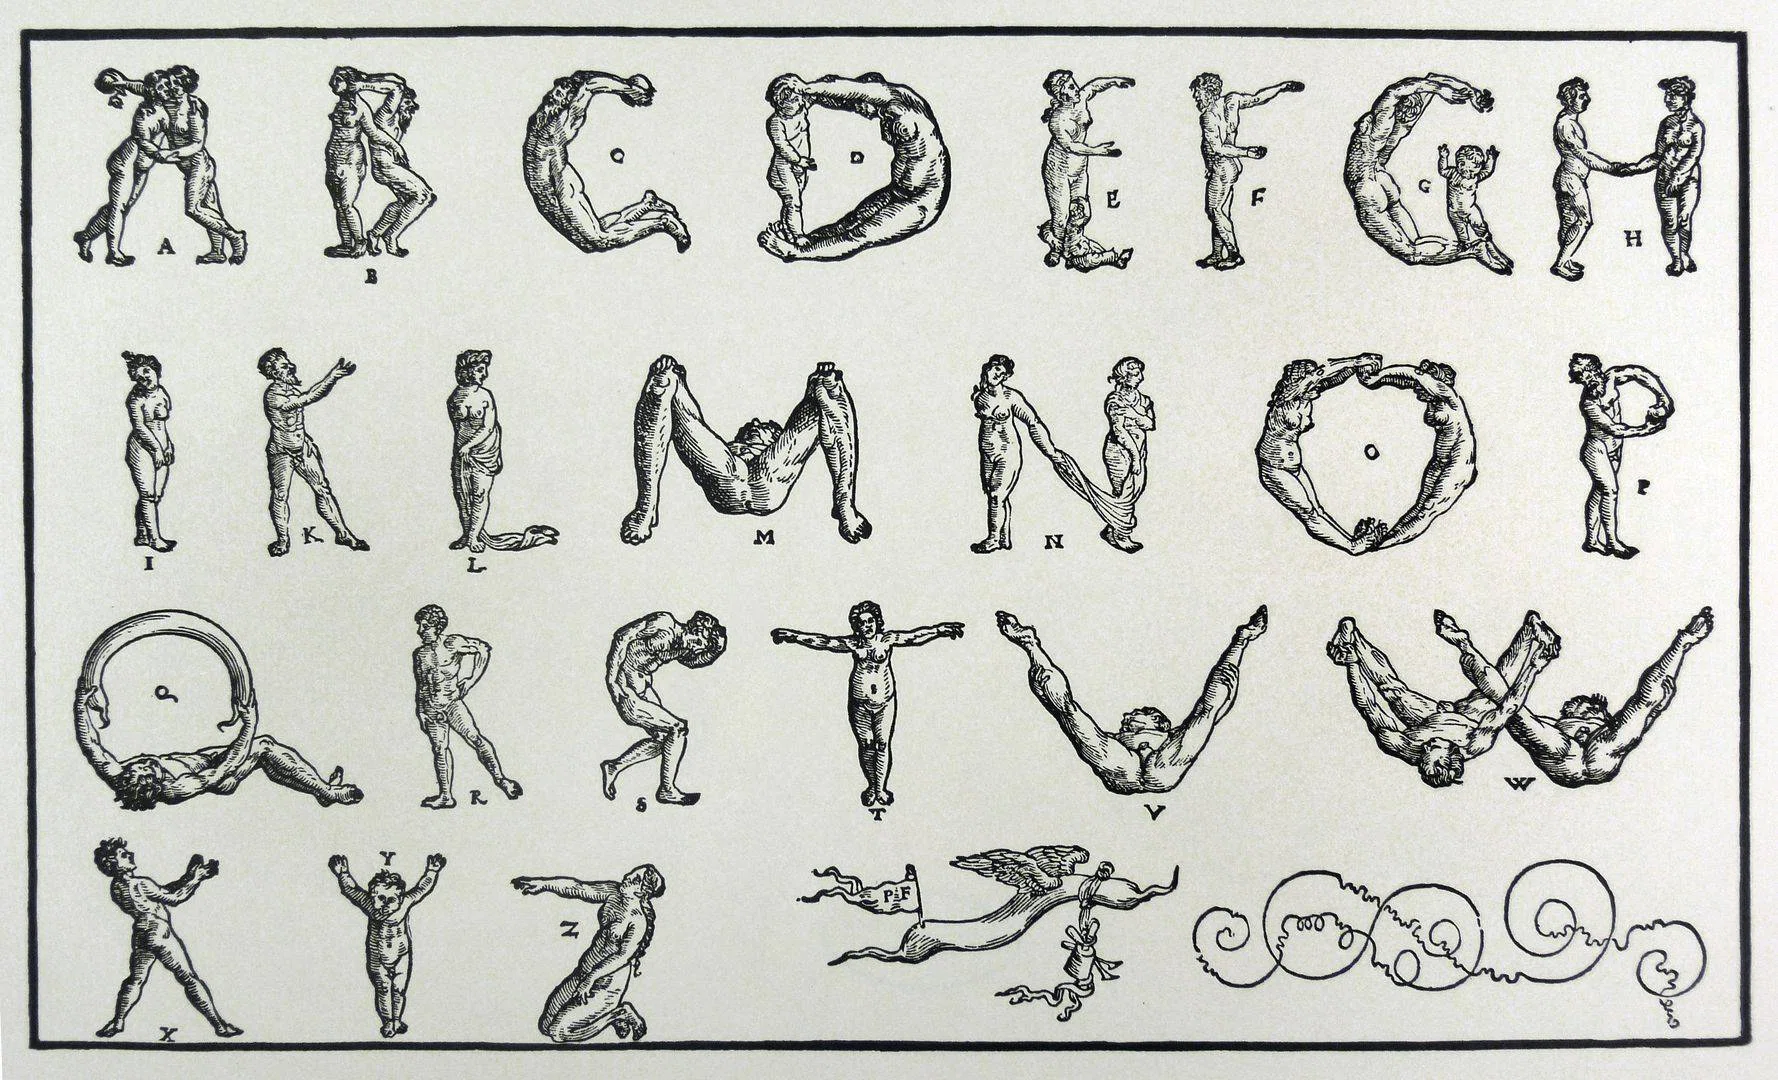 A B C D E F G H
I K L M N O P
Q R S T V W
X Y Z P F